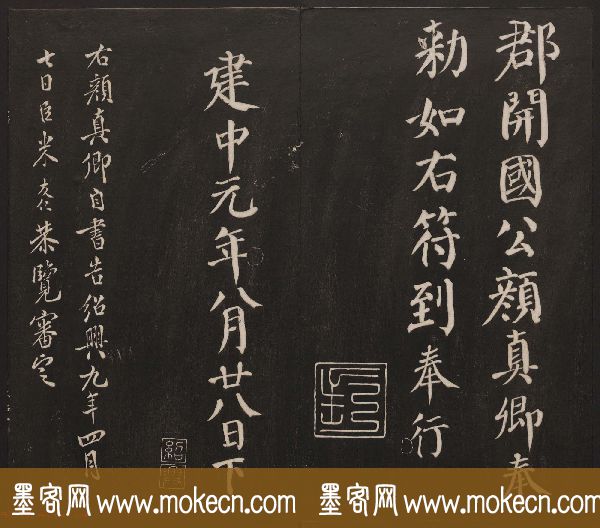 郡開國公顏真卿奉
勑如右符到奉行
建中元年八月廿八日下
右顏真卿自書告紹興九年四月
七日臣米友仁恭覽審定
墨客网 www.mokecn.com 墨客网 www.mokecn.com